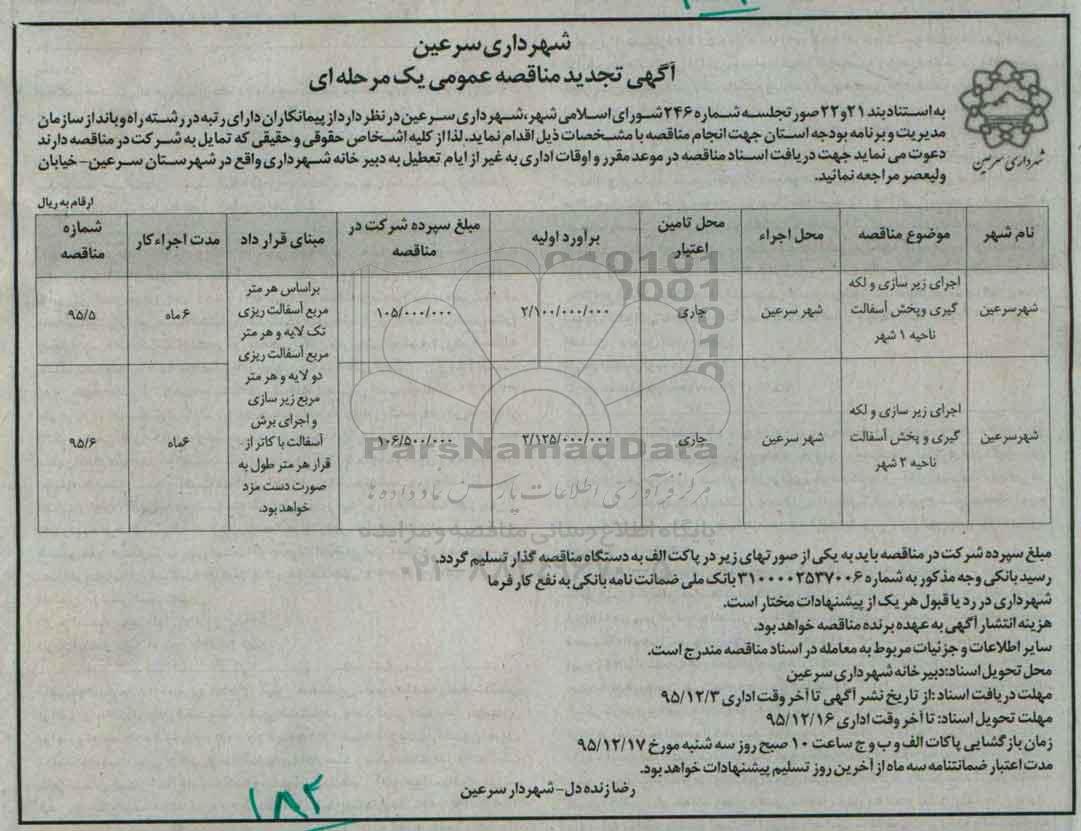 شهرداری سرعین
آگهی تجدید مناقصه عمومی یک مرحله ای
به استناد بند ۲۱ و ۲۲ صورتجلسه شماره ۲۴۶ شورای اسلامی شهر، شهرداری سرعین در نظر دارد از پیمانکاران دارای رتبه در رشته راه و باند از سازمان
مدیریت و برنامه بودجه استان جهت انجام مناقصه با مشخصات ذیل اقدام نماید. لذا از کلیه اشخاص حقوقی و حقیقی که تمایل به شرکت در مناقصه دارند
دعوت می نماید جهت دریافت اسناد مناقصه در موعد مقرر و اوقات اداری به غیر از ایام تعطیل به دبیر خانه شهرداری واقع در شهرستان سرعین- خیابان
ولیعصر مراجعه نمائید.
شهرداری سرعین
ارقام به ریال
نام شهر موضوع مناقصه محل اجراء محل تامین اعتبار برآورد اولیه مبلغ سپرده شرکت در مناقصه مبنای قرار داد مدت اجراء کار شماره مناقصه
شهر سرعین اجرای زیر سازی و لکه گیری و پخش آسفالت ناحیه ۱ شهر شهر سرعین جاری ۲/۱۰۰/۰۰۰/۰۰۰ ۱۰۵/۰۰۰/۰۰۰ براساس هر متر مربع آسفالت ریزی تک لایه و هر متر مربع آسفالت ریزی دو لایه و هر متر مربع زیر سازی و اجرای برش آسفالت با کاتر از قرار هر متر طول به صورت دست مزد خواهد بود. ۶ ماه ۹۵/۵
شهر سرعین اجرای زیر سازی و لکه گیری و پخش آسفالت ناحیه ۲ شهر شهر سرعین جاری ۲/۱۲۵/۰۰۰/۰۰۰ ۱۰۶/۵۰۰/۰۰۰ ۶ ماه ۹۵/۶
ParsNamadData
مرکز فرآوری اطلاعات پارس نماد داده ها
پایگاه اطلاع رسانی مناقصه و مزایده
مبلغ سپرده شرکت در مناقصه باید به یکی از صورتهای زیر در پاکت الف به دستگاه مناقصه گذار تسلیم گردد.
رسید بانکی وجه مذکور به شماره ۳۱۰۰۰۰۲۵۳۷۰۰۶ بانک ملی ضمانت نامه بانکی به نفع کار فرما
شهرداری در رد یا قبول هر یک از پیشنهادات مختار است.
هزینه انتشار آگهی به عهده برنده مناقصه خواهد بود.
سایر اطلاعات و جزئیات مربوط به معامله در اسناد مناقصه مندرج است.
محل تحویل اسناد: دبیر خانه شهرداری سرعین
مهلت دریافت اسناد :از تاریخ نشر آگهی تا آخر وقت اداری ۹۵/۱۲/۳
مهلت تحویل اسناد: تا آخر وقت اداری ۹۵/۱۲/۱۶
زمان بازگشایی پاکات الف و ب و ج ساعت ۱۰ صبح روز سه شنبه مورخ ۹۵/۱۲/۱۷
مدت اعتبار ضمانتنامه سه ماه از آخرین روز تسلیم پیشنهادات خواهد بود.
رضا زنده دل- شهردار سرعین
۱۸۴